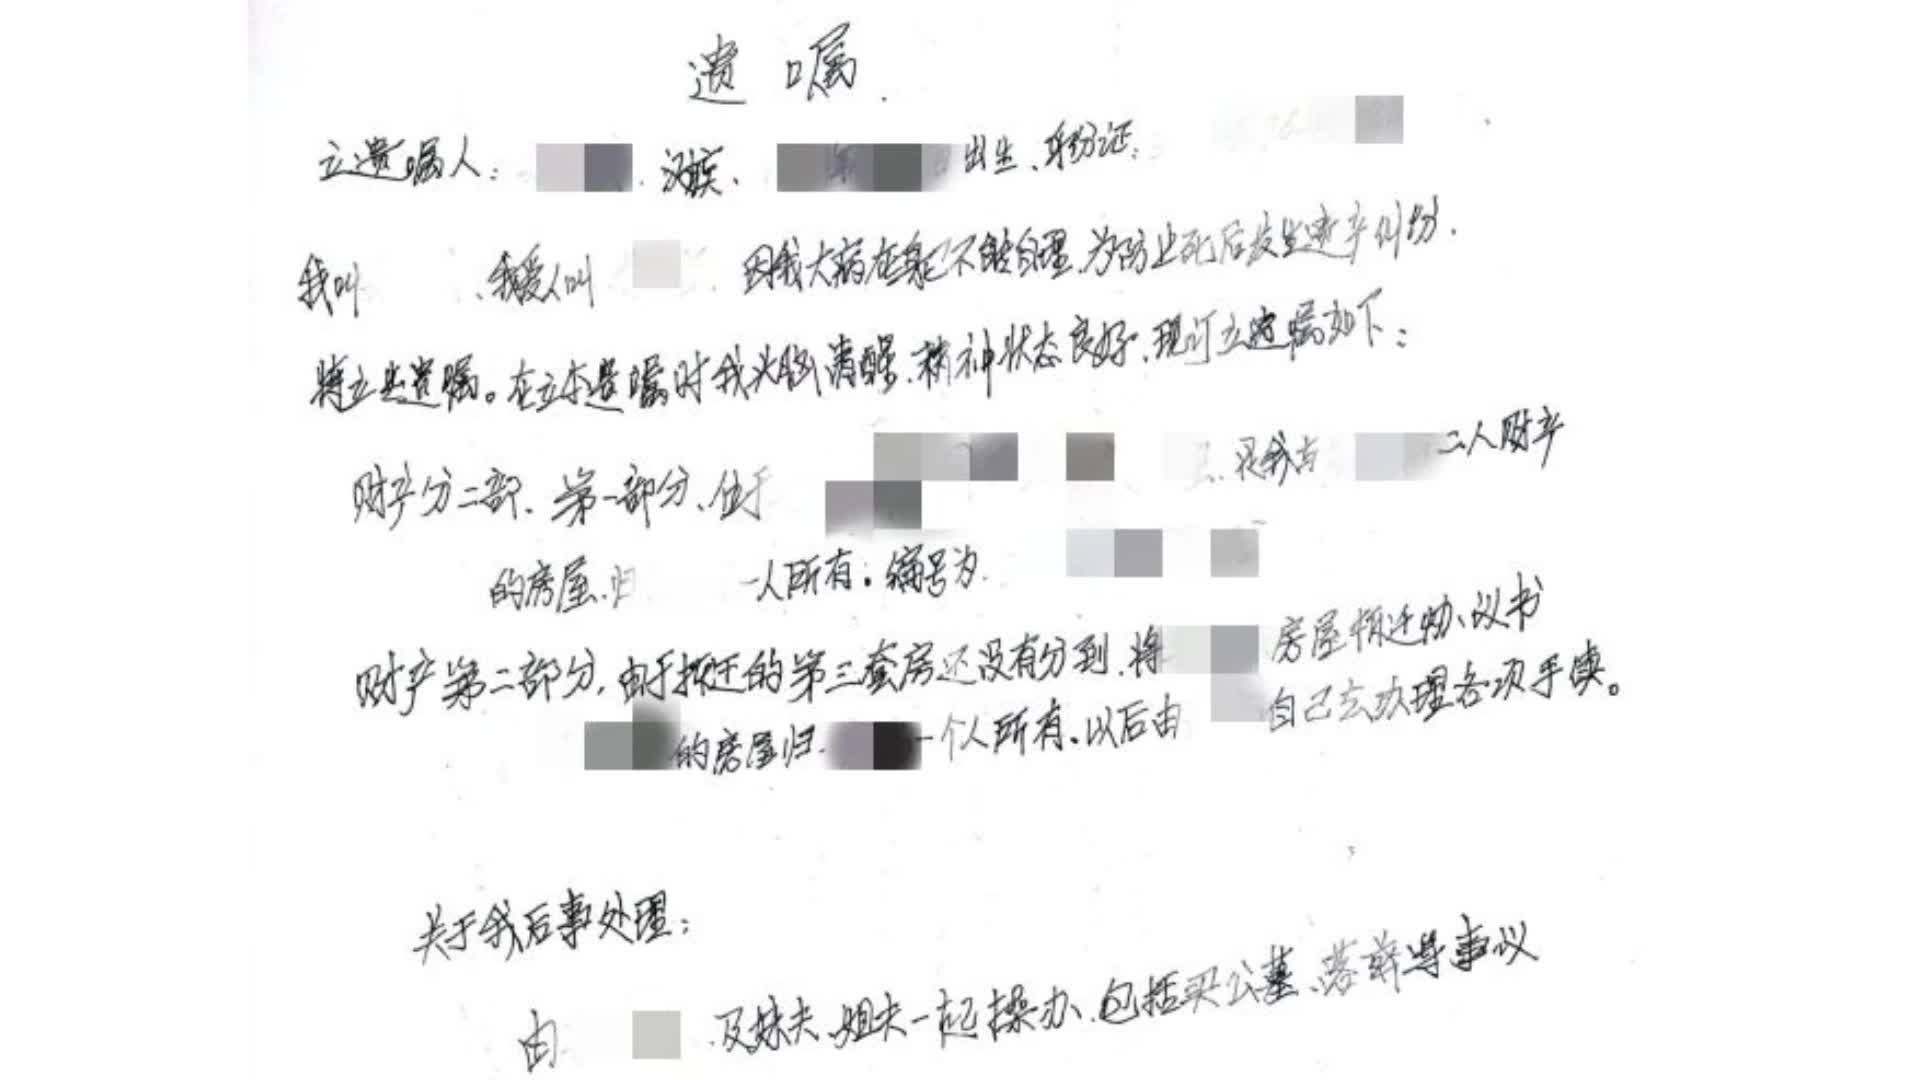 遗嘱.
立遗嘱人: 汉族、 出生、身份证:
我叫 、我爱人叫 因我大病在身已不能自理、为防止死后发生遗产纠纷.
特立此遗嘱。在立本遗嘱时我头脑清醒、精神状态良好、现订立遗嘱如下:
财产分二部、第一部分、位于 是我与 二人财产
的房屋、归 一人所有。编号为
财产第二部分,由于拆迁的第三套房还没有分到、将 房屋拆迁协议书
的房屋归 一个人所有、以后由 自己去办理各项手续。
关于我后事处理:
由 、及妹夫、姐夫一起操办、包括买公墓、落葬等事议